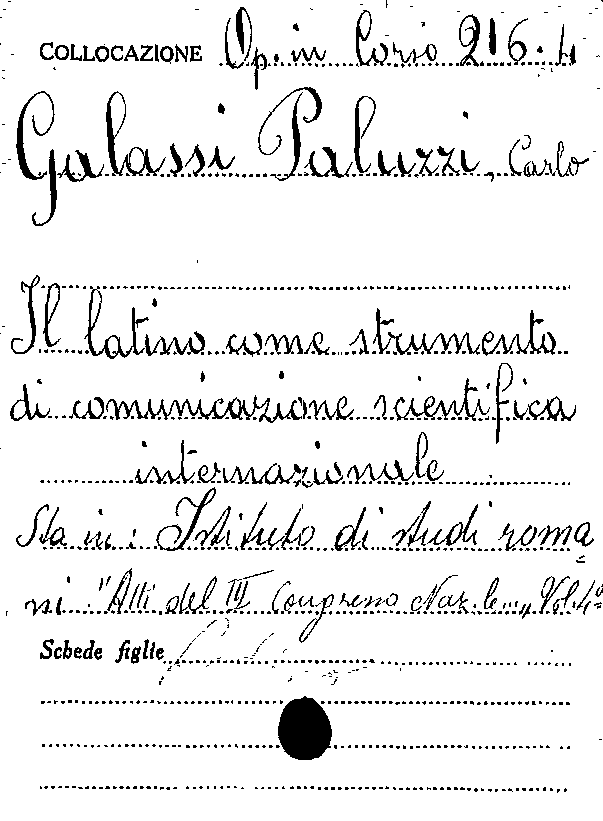 COLLOCAZIONE Op. in Corso 216.4
Galassi Paluzzi, Carlo
Il latino come strumento
di comunicazione scientifica
internazionale
Sta in: Istituto di studi roma
ni. "Atti del III Congresso Naz.le...„ Vol. 4º
Schede figlie